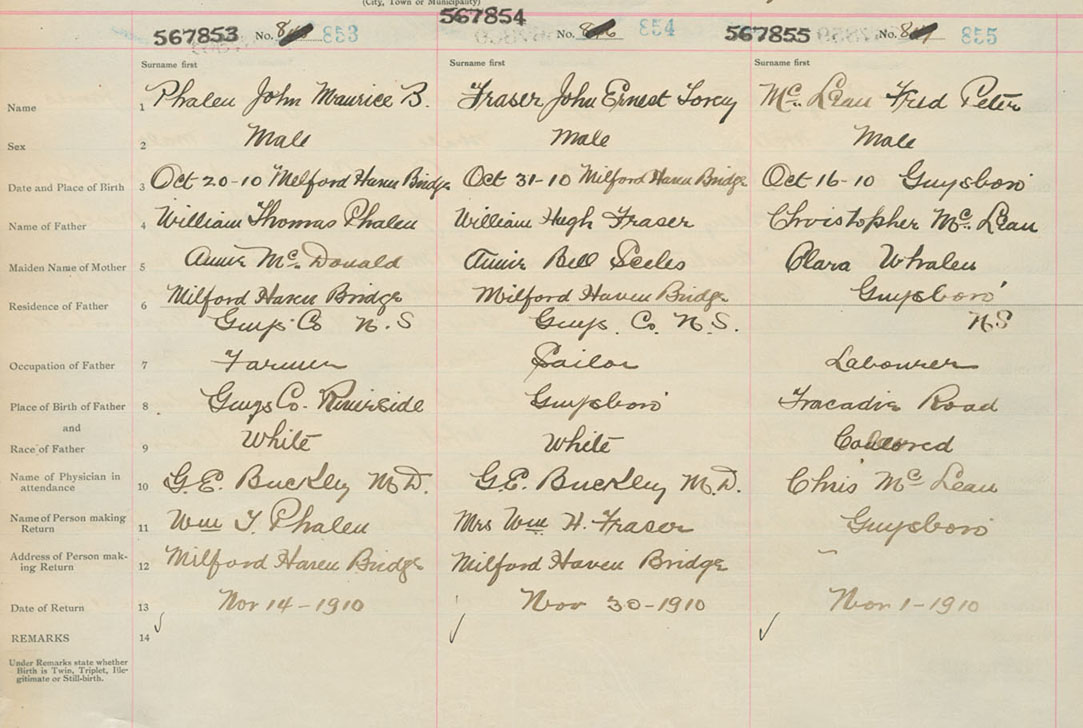 (City, Town or Municipality)
567853 No. 853
567854 No. 854
567855 No. 855
Surname first Surname first Surname first
Name 1 Phalen John Maurice B. Fraser John Ernest Torey Mc. Lean Fred Peter
Sex 2 Male Male Male
Date and Place of Birth 3 Oct 20-10 Melford Haven Bridge Oct 31-10 Milford Haven Bridge Oct 16-10 Guysboro'
Name of Father 4 William Thomas Phalen William Hugh Fraser Christopher Mc. Lean
Maiden Name of Mother 5 Annie Mc. Donald Annie Bell Clara Whalen
Residence of Father 6 Milford Haven Bridge Milford Haven Bridge Guysboro'
Guys Co N.S Guys. Co. N.S. N.S
Occupation of Father 7 Farmer Sailor Labourer
Place of Birth of Father 8 Guys Co. Riverside Guysboro' Tracadie Road
and
Race of Father 9 White White Coloured
Name of Physician in
attendance 10 G.E. Buckley M.D. G.E. Buckley M.D. Chris Mc Lean
Name of Person making
Return 11 Wm T. Phalen Mrs Wm H. Fraser Guysboro'
Address of Person mak-
ing Return 12 Milford Haven Bridge Milford Haven Bridge
Date of Return 13 Nov 14-1910 Nov 30-1910 Nov 1-1910
REMARKS 14
Under Remarks state whether
Birth is Twin, Triplet, Ille-
gitimate or Still-birth.